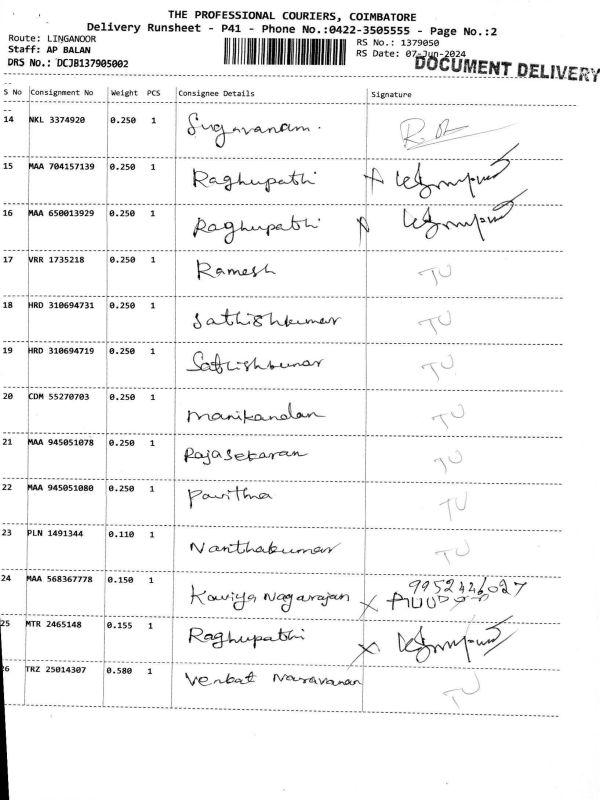 THE PROFESSIONAL COURIERS, COIMBATORE
Delivery Runsheet - P41 - Phone No.:0422-3505555 - Page No.:2
Route: LINGANOOR
RS No.: 1379050
Staff: AP BALAN
RS Date: 07-Jun-2024
DRS No.: DCJB137905002
DOCUMENT DELIVERY
S No Consignment No Weight PCS Consignee Details Signature
14 NKL 3374920 0.250 1 Sugavanam.
15 MAA 704157139 0.250 1 Raghupathi
16 MAA 650013929 0.250 1 Raghupathi
17 VRR 1735218 0.250 1 Ramesh TU
18 HRD 310694731 0.250 1 Sathishkumar TU
19 HRD 310694719 0.250 1 Sathishkumar TU
20 CDM 55270703 0.250 1 Manikandan TU
21 MAA 945051078 0.250 1 Rajasekaran TU
22 MAA 945051080 0.250 1 Pavithra TU
23 PLN 1491344 0.110 1 Nanthakumar TU
24 MAA 568367778 0.150 1 Kaviya Nagarajan
25 MTR 2465148 0.155 1 Raghupathi
26 TRZ 25014307 0.580 1 Venkat Narayanan TU